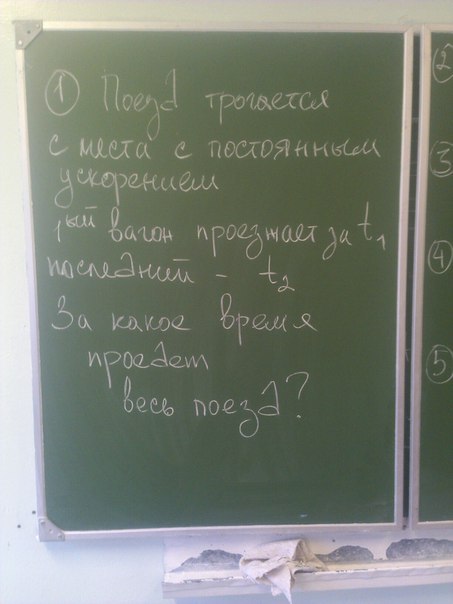 ① Поезд трогается
с места с постоянным
ускорением
1ый вагон проезжает за t₁
последний - t₂
За какое время
проедет
весь поезд?
②
③
④
⑤